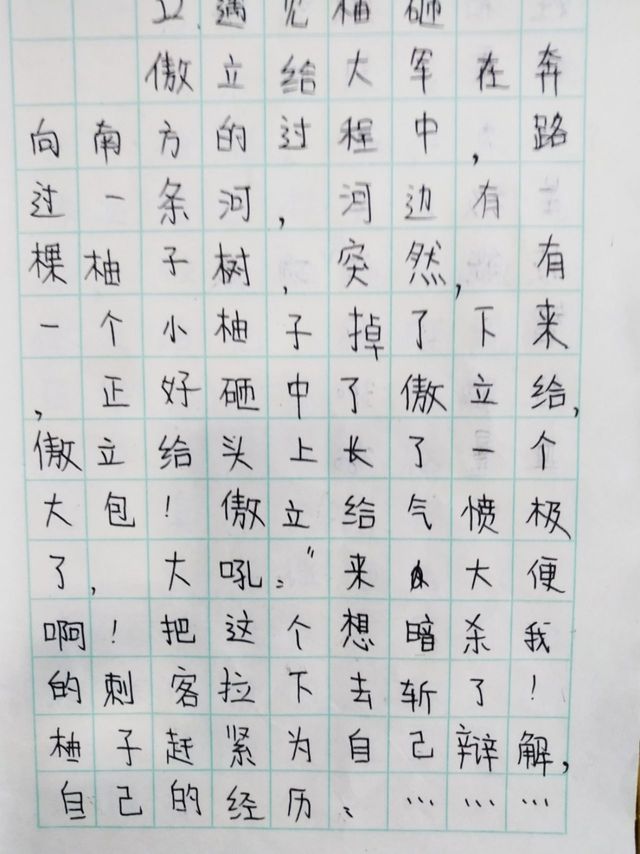 卫遇见柚砸
傲立给大军在奔
向南方的过程中，路
过一条河，河边有一
棵柚子树，突然，有
一个小柚子掉了下来
，正好砸中了傲立给，
傲立给头上长了一个
大包！傲立给气愤极
了，大吼：“来大便
啊！把这个想暗杀我
的刺客拉下去斩了！
柚子赶紧为自己辩解，
自己的经历、………